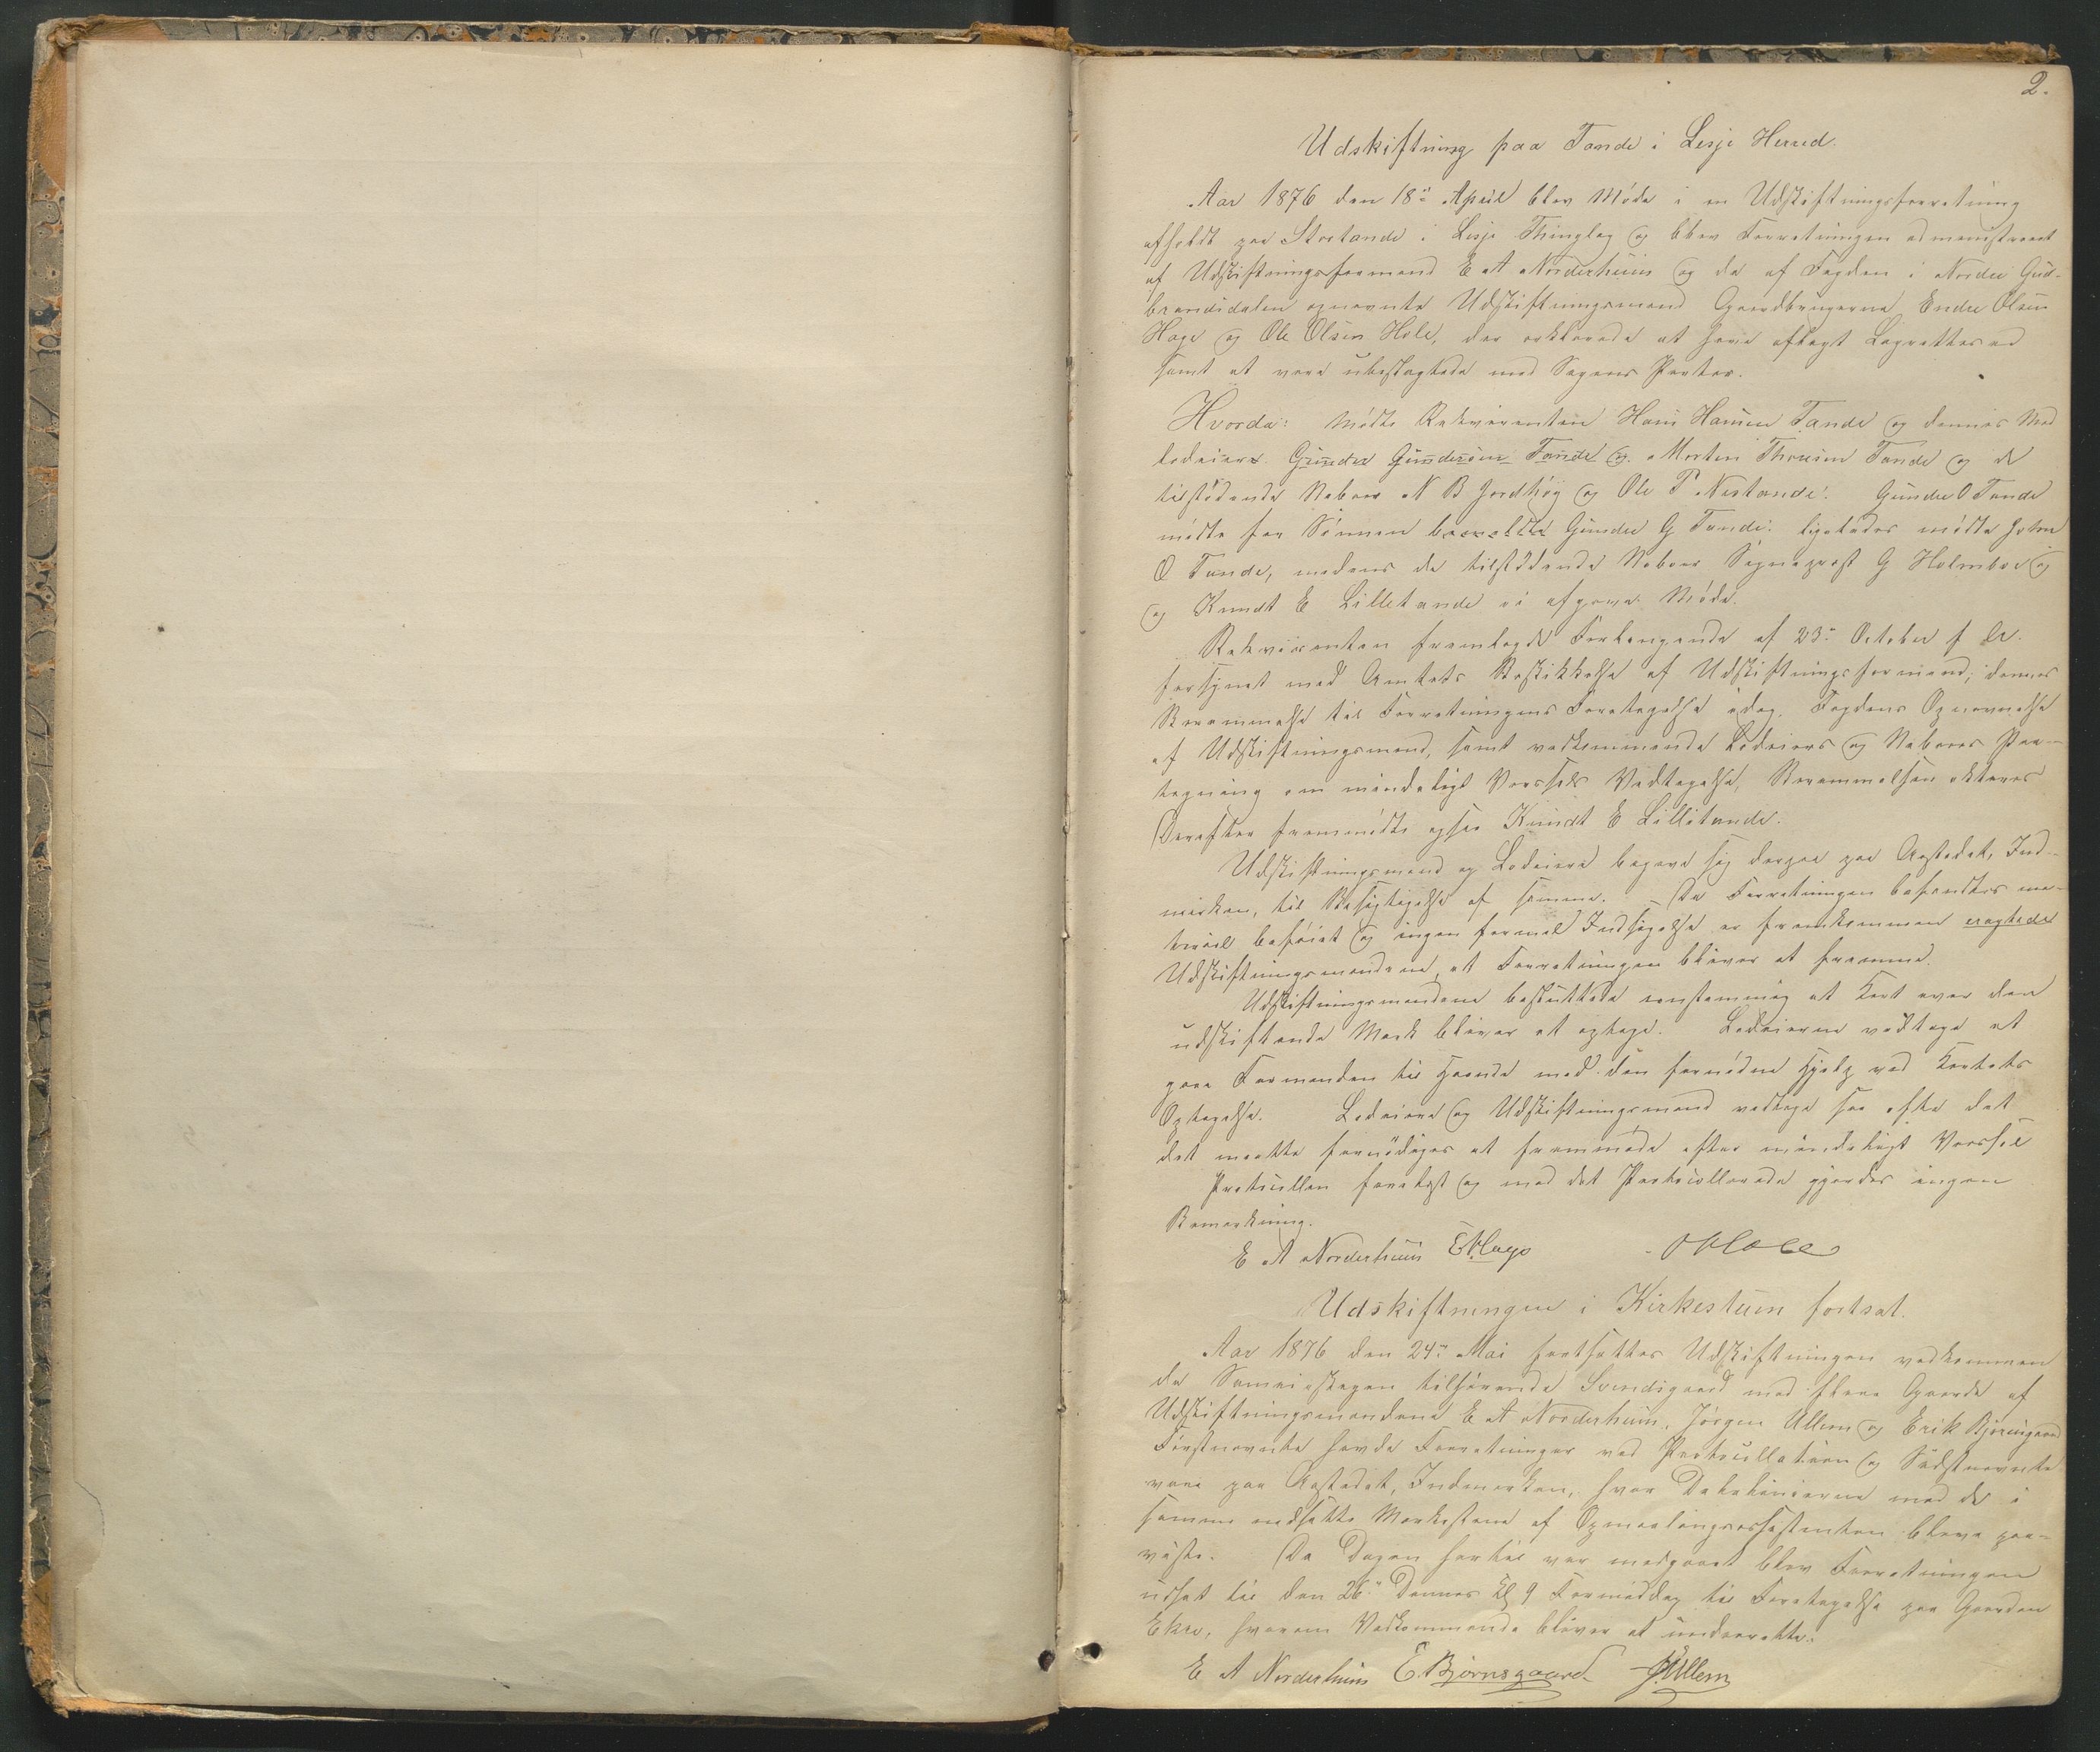 2.
Udskiftning paa Tande i Lesje Herred.
Aar 1876 den 18de April blev Möde i en Udskiftningsforretning
afholdt paa Stortande i Lesje Thinglag og blev Forretningen administreret
af Udskiftningsformand E A Norderhuus og de af Fogden i Nordre Gud-
brandsdalen opnævnte Udskiftningsmænd Gaardbrugerne Endre Olsen
Hage og Ole Olsen Hole, der erklærede at have aflagt Lagretteseed
samt at være ubeslægtede med Sagens Parter.
Hvorda: mödte Rekvirenten Hans Hansen Tande og dennes Med
lodeiere Gunder Gundersen Tande og Morten Thoresen Tande og de
tilstödende Naboer N B Jordhøy og Ole P Nestande. Gunder O Tande
mödte for Sönnen Gunder G Tande: ligeledes mödte John
O Tande, medens de tilstödende Naboer Sogneprest G Holmboe og
og Knudt E Lilletande ei afgave Möde.
Rekvirenten fremlagde Forlangende af 23de October f Ar.
forsynet med Amtets Beskikkelse af Udskiftningsformand, dennes
Berammelse til Forretningens Foretagelse idag, Fogdens Opnævnelse
af Udskiftningsmænd, samt vedkommende Lodeieres og Naboers Paa-
tegning om mundtligt Varsels Vedtagelse, Berammelsen akteres
Derefter fremmödte ogsaa Knudt E Lilletande.
Udskiftningsmænd og Lodeiere begave sig derpaa paa Aastedet, Ind-
marken, til Besigtigelse af samme. – Da Forretningen befandtes ma-
teriel beföiet og ingen formel Indsigelse er fremkommen eragtede
Udskiftningsmændene at Forretningen bliver at fremme.
Udskiftningsmændene besluttede eenstemmig at Kart over den
udskiftende Mark bliver at optage. Lodeierne vedtoge at
gaae Formanden til Haande med den fornödne Hjælp ved Kartets
Optagelse. Lodeiere og Udskiftningsmænd vedtoge saa ofte det
det maatte fornödiges at fremmöde efter mundtligt Varsel
Protocollen forelæst og mod det Protocollerede gjordes ingen
Bemærkning.
E A Norderhuus E Hage O Hole
Udskiftningen i Kirkestuen fortsat.
Aar 1876 den 24de Mai fortsattes Udskiftningen vedkommen
de Sameieskogen tilhörende Svendsgaard med flere Gaarde af
Udskiftningsmændene E A Norderhuus, Jörgen Ullern og Erik Bjørnsgaard
Förstnævnte havde Forretninger ved Protocollation og Sidstnævnte
vare paa Aastedet, Indmarken, hvor Delelinierne med de i
samme nedsatte Merkestene af Opmaalingsassistenten bleve paa-
viste. Da Dagen hertil var medgaaet blev Forretningen
udsat til den 26de Dennes Kl 9 Formiddag til Foretagelse paa Gaarden
Ekre, hvorom Vedkommende bliver at underrette.
E A Norderhuus E. Bjørnsgaard J. Ullern